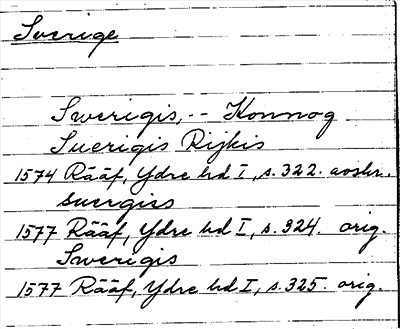 Sverige
Swerigis, -- Konnog
Suerigis Rijkis
1574 Rääf, Ydre hd I, s. 322. avskr.
suergiss
1577 Rääf, Ydre hd I, s. 324. orig.
Swerigis
1577 Rääf, Ydre hd I, s. 325. orig.